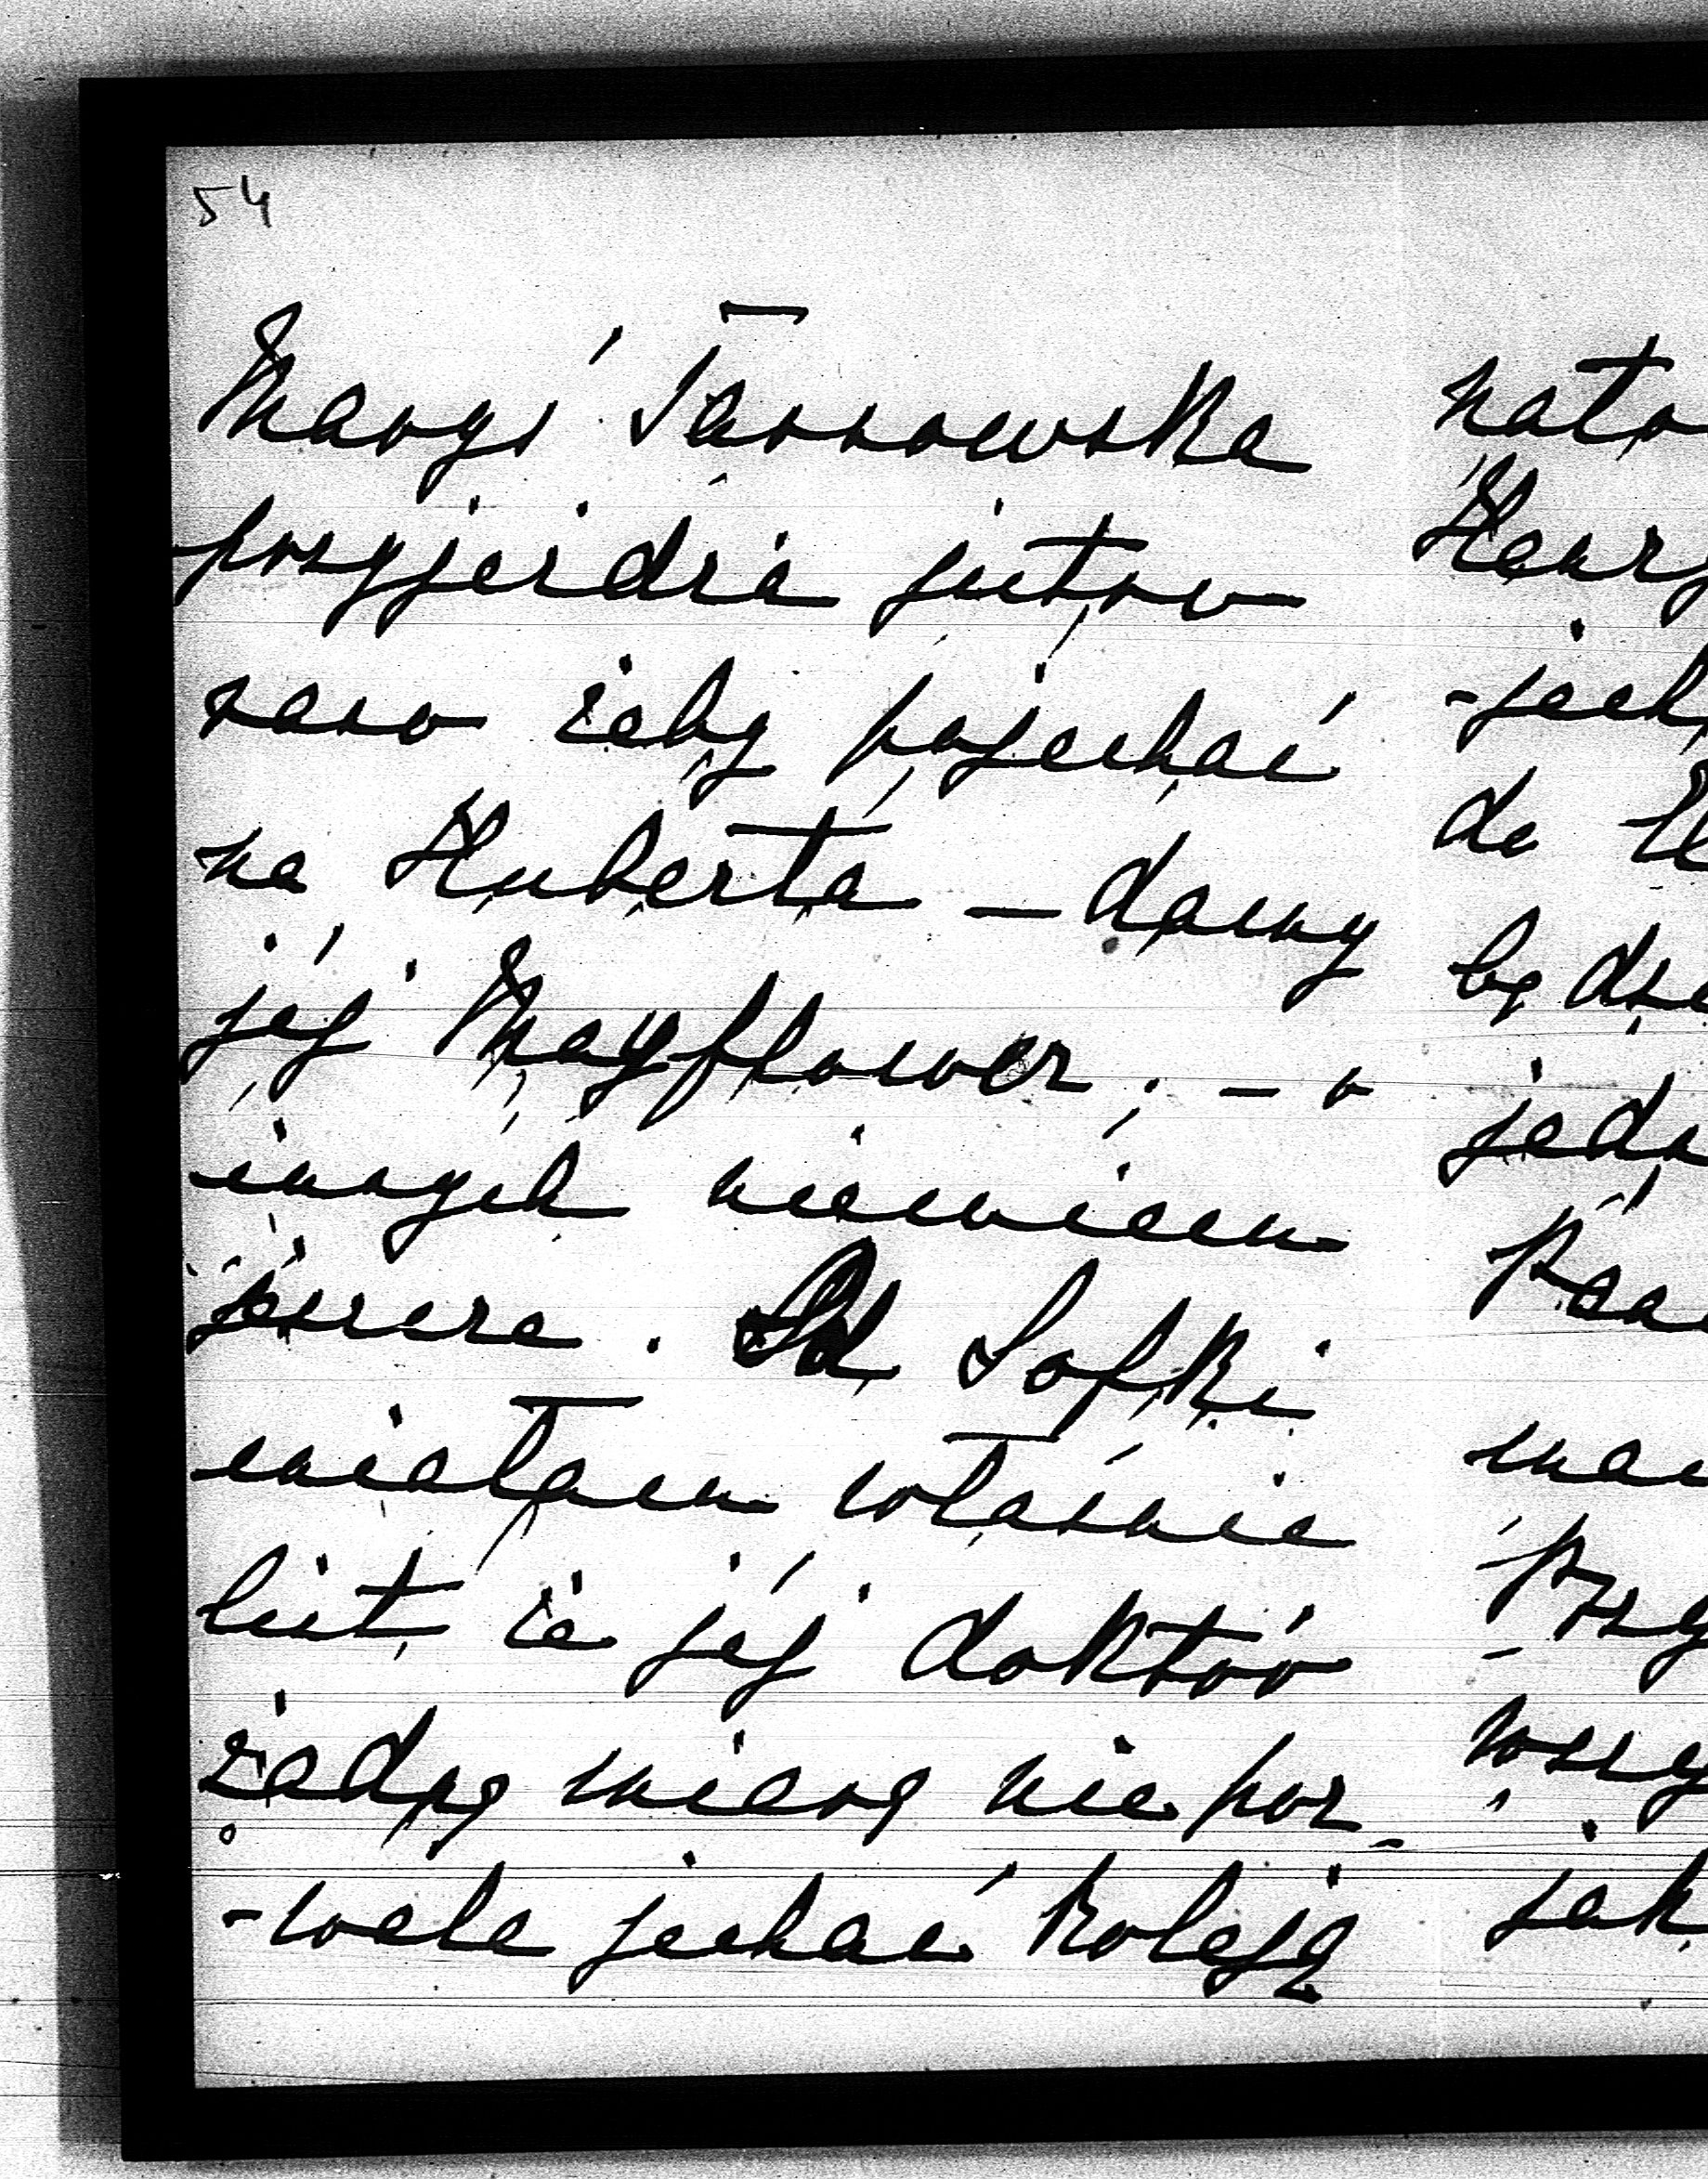 54
Maryś Tarnowska
przyjeżdża jutro
rano żeby pojechać
na Huberta – damy
jéj Mayflower; – o
innych niewiem
jeszcze. Od Sofki
miałam właśnie
list że jéj doktór
żadną miarą nie poz-
-wala jechać koleją
nato
Henry
-jech
do
będzie
jedn
Pan
mam
przy
wszy
jak